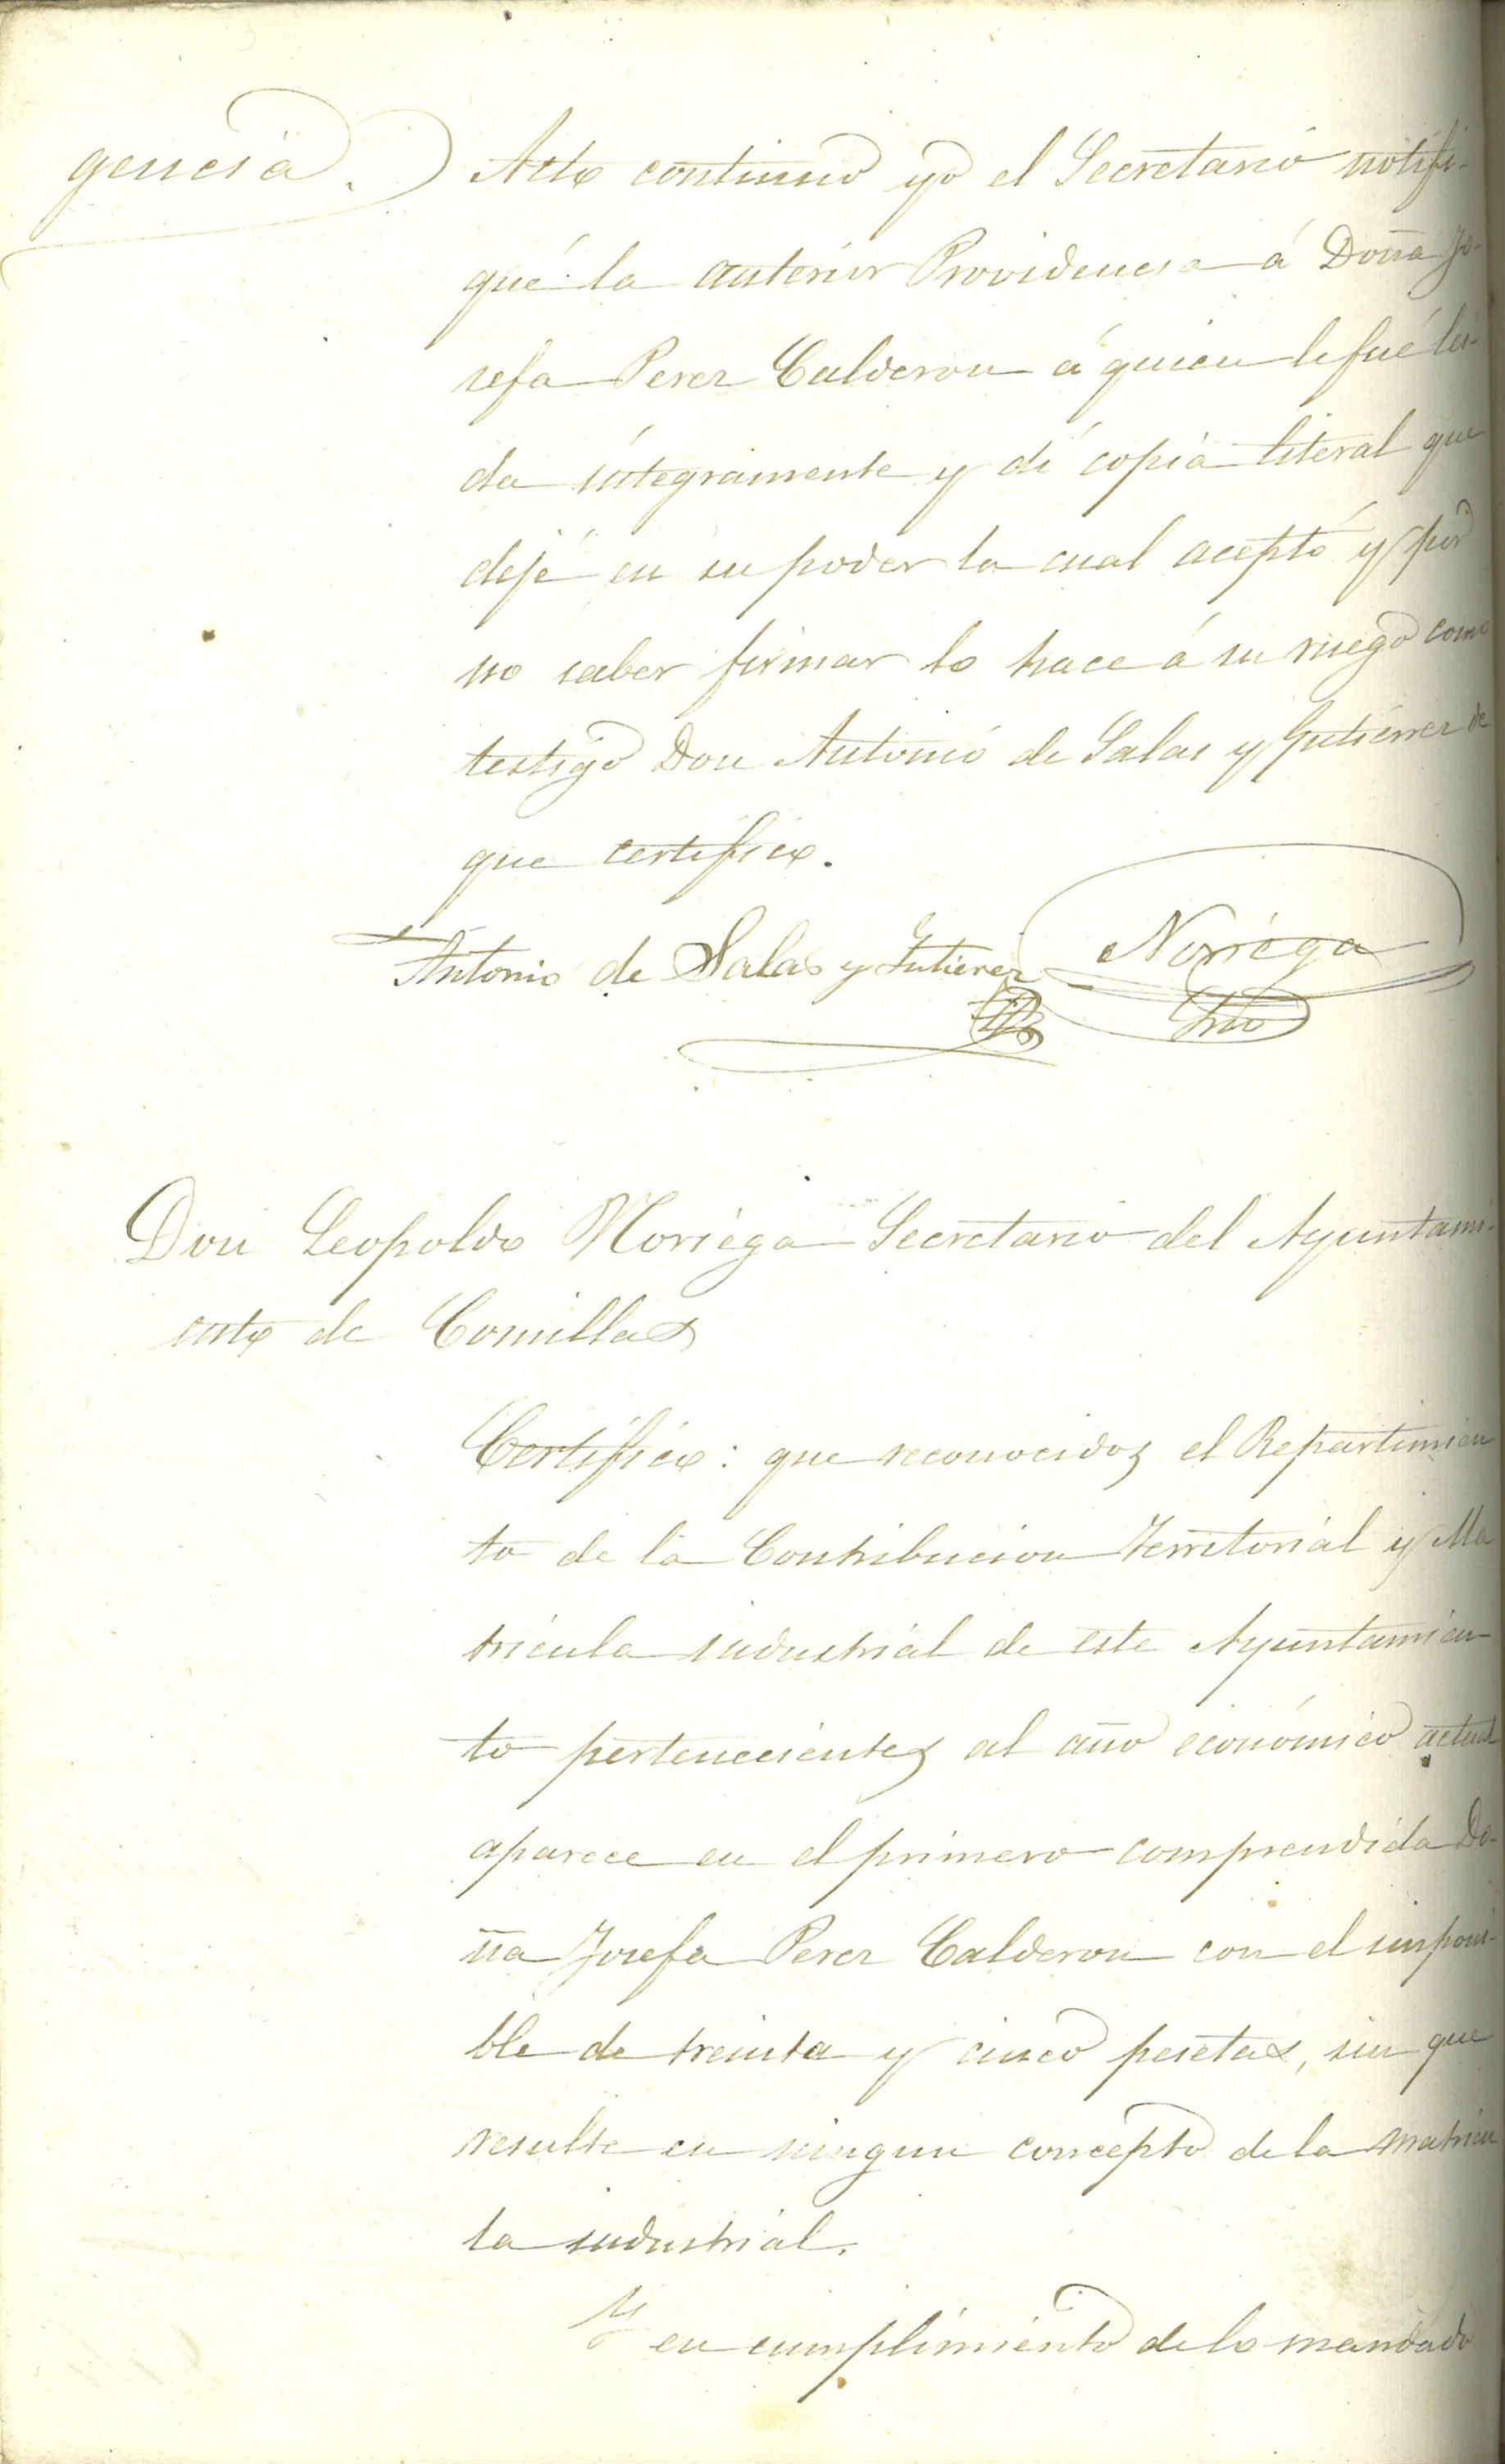 gencia.) Acto continuo yo el Secretario notifi-
qué la anterior Providencia á Doña Jo-
sefa Perez Calderon á quien le fué lei-
da íntegramente y dí copia literal que
dejé en su poder la cual aceptó y por
no saber firmar lo hace á su ruego como
testigo Don Antonio de Salas y Gutierrez de
que certifico.
Antonio de Salas y Gutierrez Noriega
Srio
Don Leopoldo Noriega Secretario del Ayuntami-
ento de Comillas
Certifico: que reconocidos el Repartimien
to de la Contribucion Territorial y Ma
tricula industrial de este Ayuntamien-
to pertenecientes al año económico actual
aparece en el primero comprendida Do-
ña Josefa Perez Calderon con el imponi-
ble de treinta y cinco pesetas, sin que
resulte en ningun concepto de la matricu
la industrial.
Y en cumplimiento de lo mandado